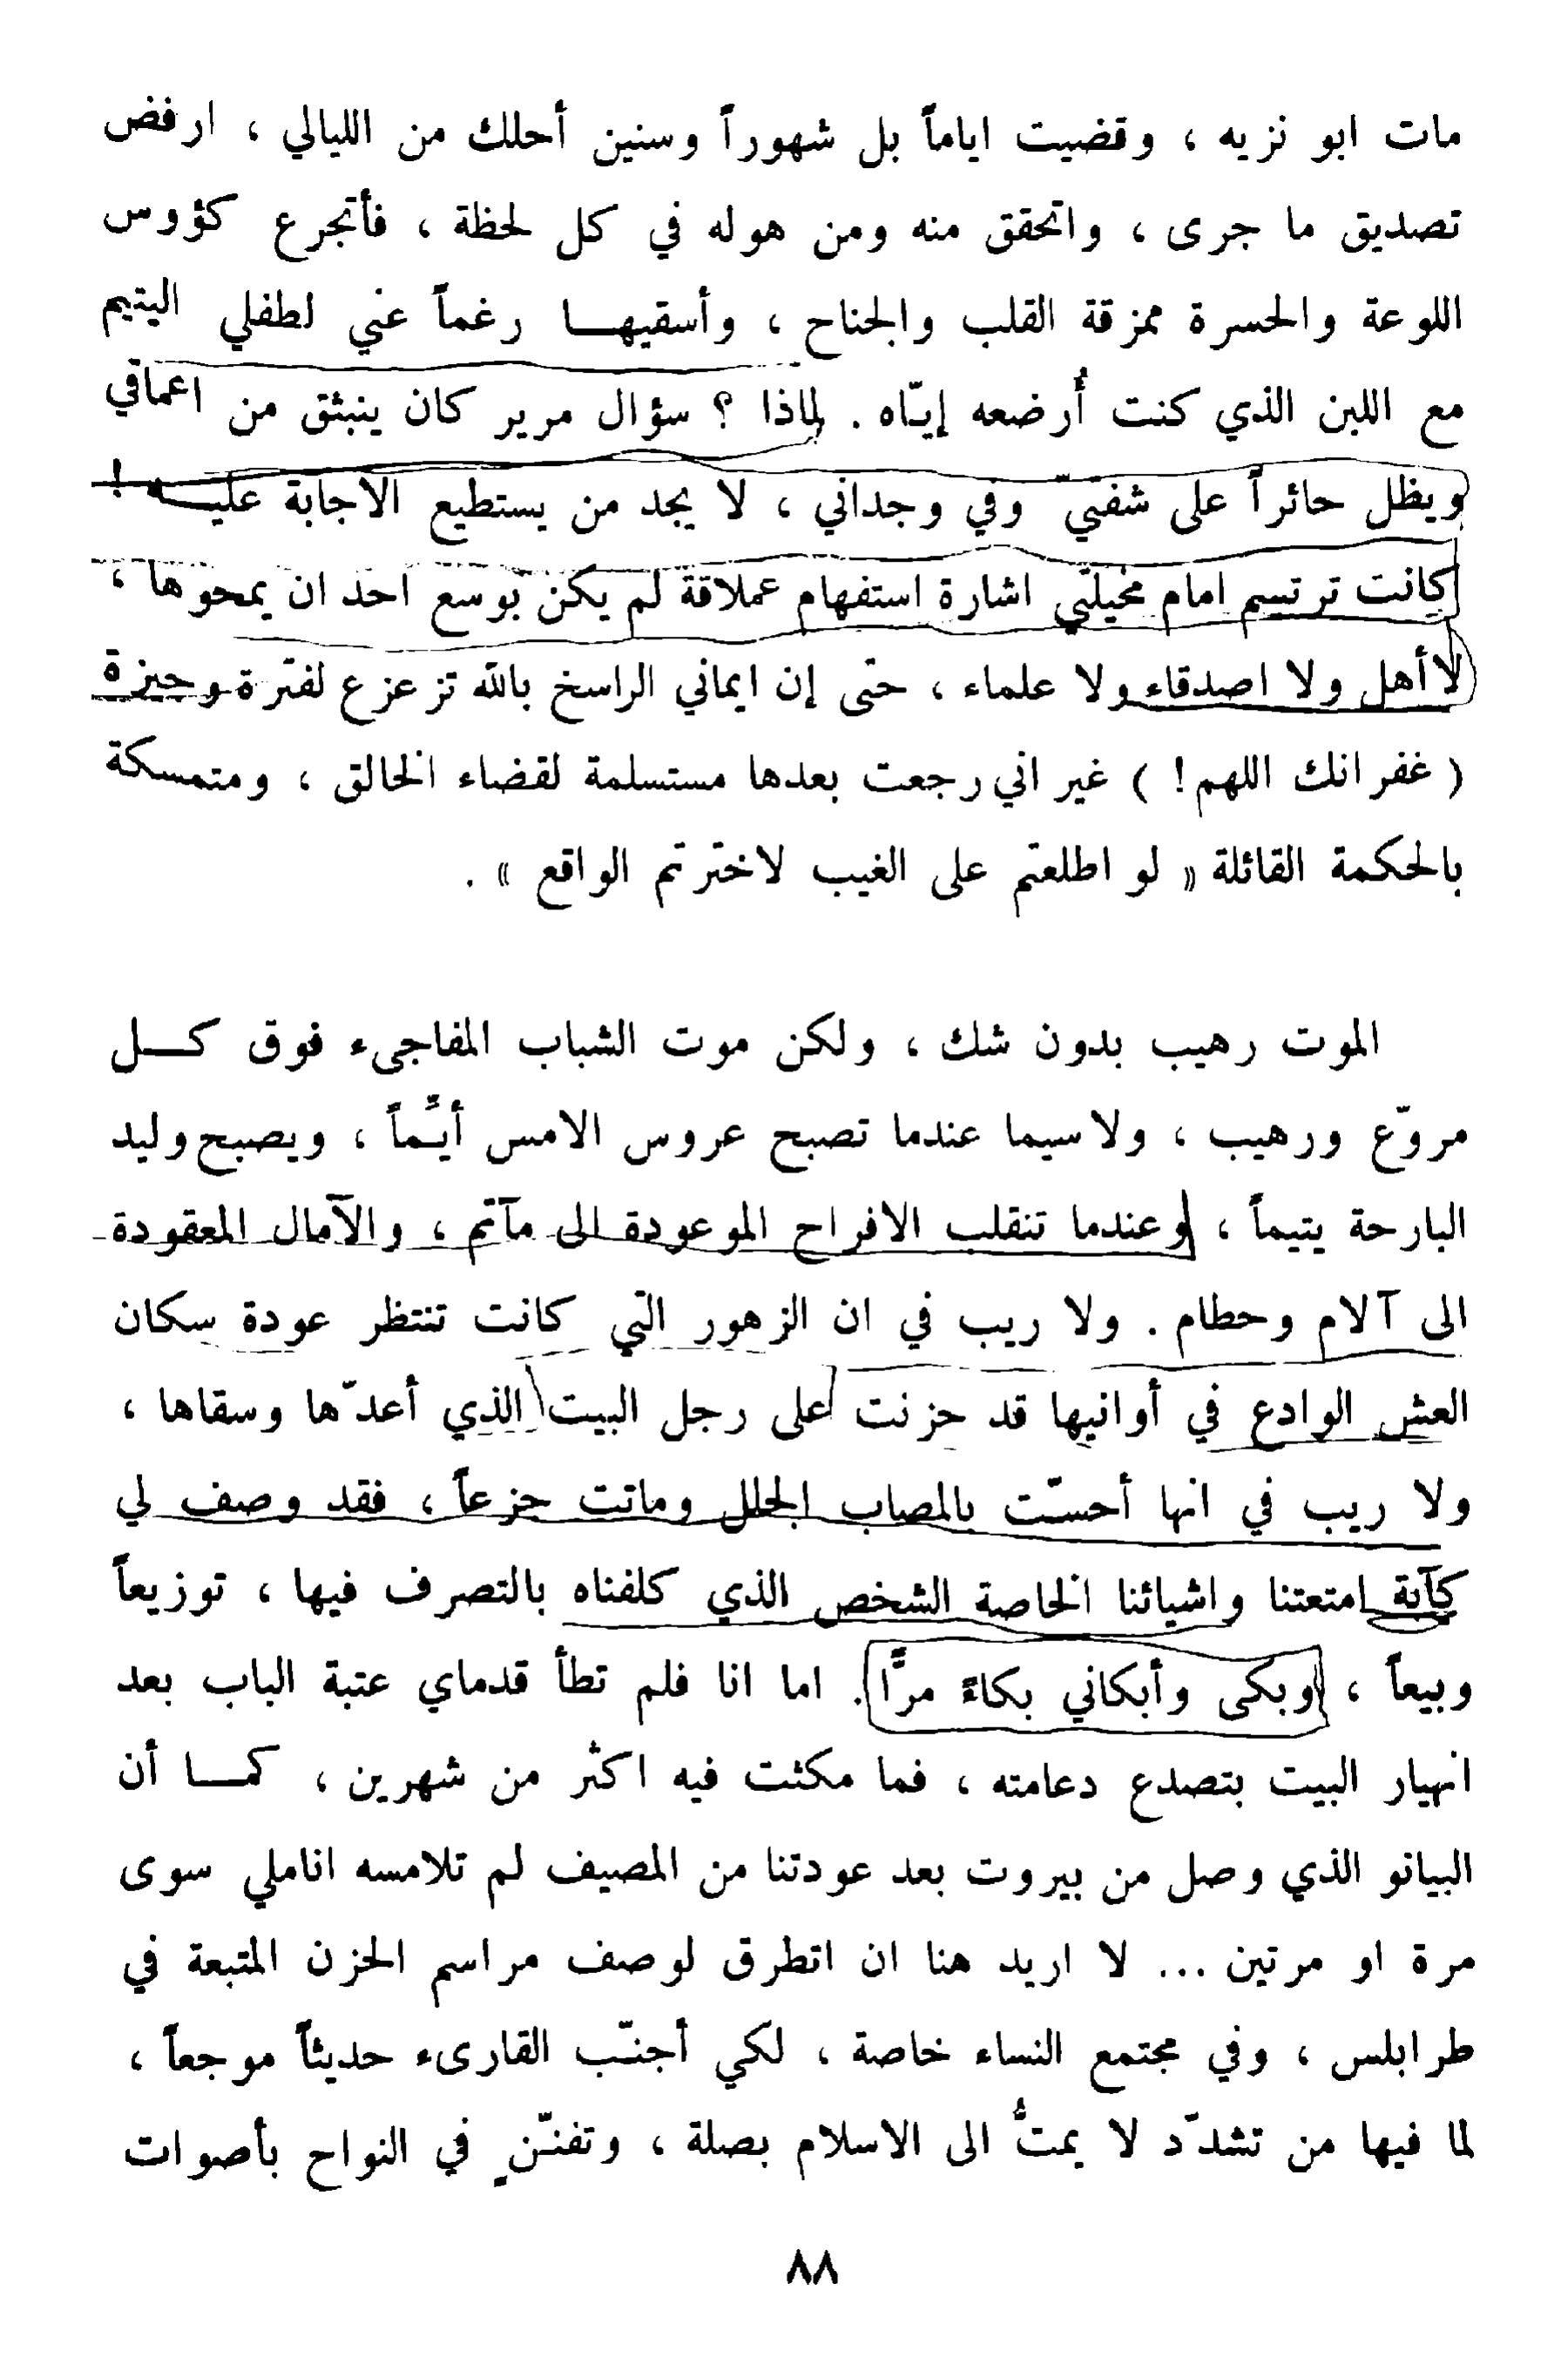 مات ابو نزيه ، وقضيت اياماً بل شهوراً وسنين أحلك من الليالي ، ارفض
تصديق ما جرى ، واتحقق منه ومن هوله في كل لحظة ، فأتجرع كؤوس
اللوعة والحسرة ممزقة القلب والجناح ، وأسقيهــا رغماً عني لطفلي اليتيم
مع اللبن الذي كنت أُرضعه إيّاه . لماذا ؟ سؤال مرير كان ينبثق من اعماقي
ويظل حائراً على شفتيّ وفي وجداني ، لا يجد من يستطيع الاجابة عليــه !
كانت ترتسم امام مخيلتي اشارة استفهام عملاقة لم يكن بوسع احد ان يمحوها ،
لا أهل ولا اصدقاء ولا علماء ، حتى إن ايماني الراسخ بالله تزعزع لفترة وجيزة
( غفرانك اللهم ! ) غير اني رجعت بعدها مستسلمة لقضاء الخالق ، ومتمسكة
بالحكمة القائلة « لو اطلعتم على الغيب لاخترتم الواقع » .
الموت رهيب بدون شك ، ولكن موت الشباب المفاجىء فوق كــل
مروّع ورهيب ، ولا سيما عندما تصبح عروس الامس أيـِّماً ، ويصبح وليد
البارحة يتيماً ، وعندما تنقلب الافراح الموعودة الى مآتم ، والآمال المعقودة
الى آلام وحطام . ولا ريب في ان الزهور التي كانت تنتظر عودة سكان
العش الوادع في أوانيها قد حزنت على رجل البيت الذي أعدّها وسقاها ،
ولا ريب في انها أحسّت بالمصاب الجلل وماتت جزعاً ، فقد وصف لي
كآبة امتعتنا واشيائنا الخاصة الشخص الذي كلفناه بالتصرف فيها ، توزيعاً
وبيعاً ، وبكى وأبكاني بكاءً مرًّا . اما انا فلم تطأ قدماي عتبة الباب بعد
انهيار البيت بتصدع دعامته ، فما مكثت فيه اكثر من شهرين ، كمــا أن
البيانو الذي وصل من بيروت بعد عودتنا من المصيف لم تلامسه اناملي سوى
مرة او مرتين ... لا اريد هنا ان اتطرق لوصف مراسم الحزن المتبعة في
طرابلس ، وفي مجتمع النساء خاصة ، لكي أجنـّب القارىء حديثاً موجعاً ،
لما فيها من تشدّد لا يمتُّ الى الاسلام بصلة ، وتفنـّنٍ في النواح بأصوات
٨٨